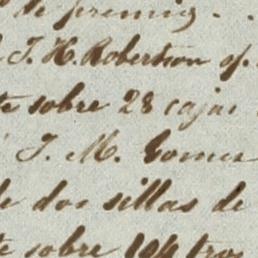 de premio .
J. H. Robertson of.
sobre 28 cajas
J. M. Gomez
de dos sillas de
sobre 104